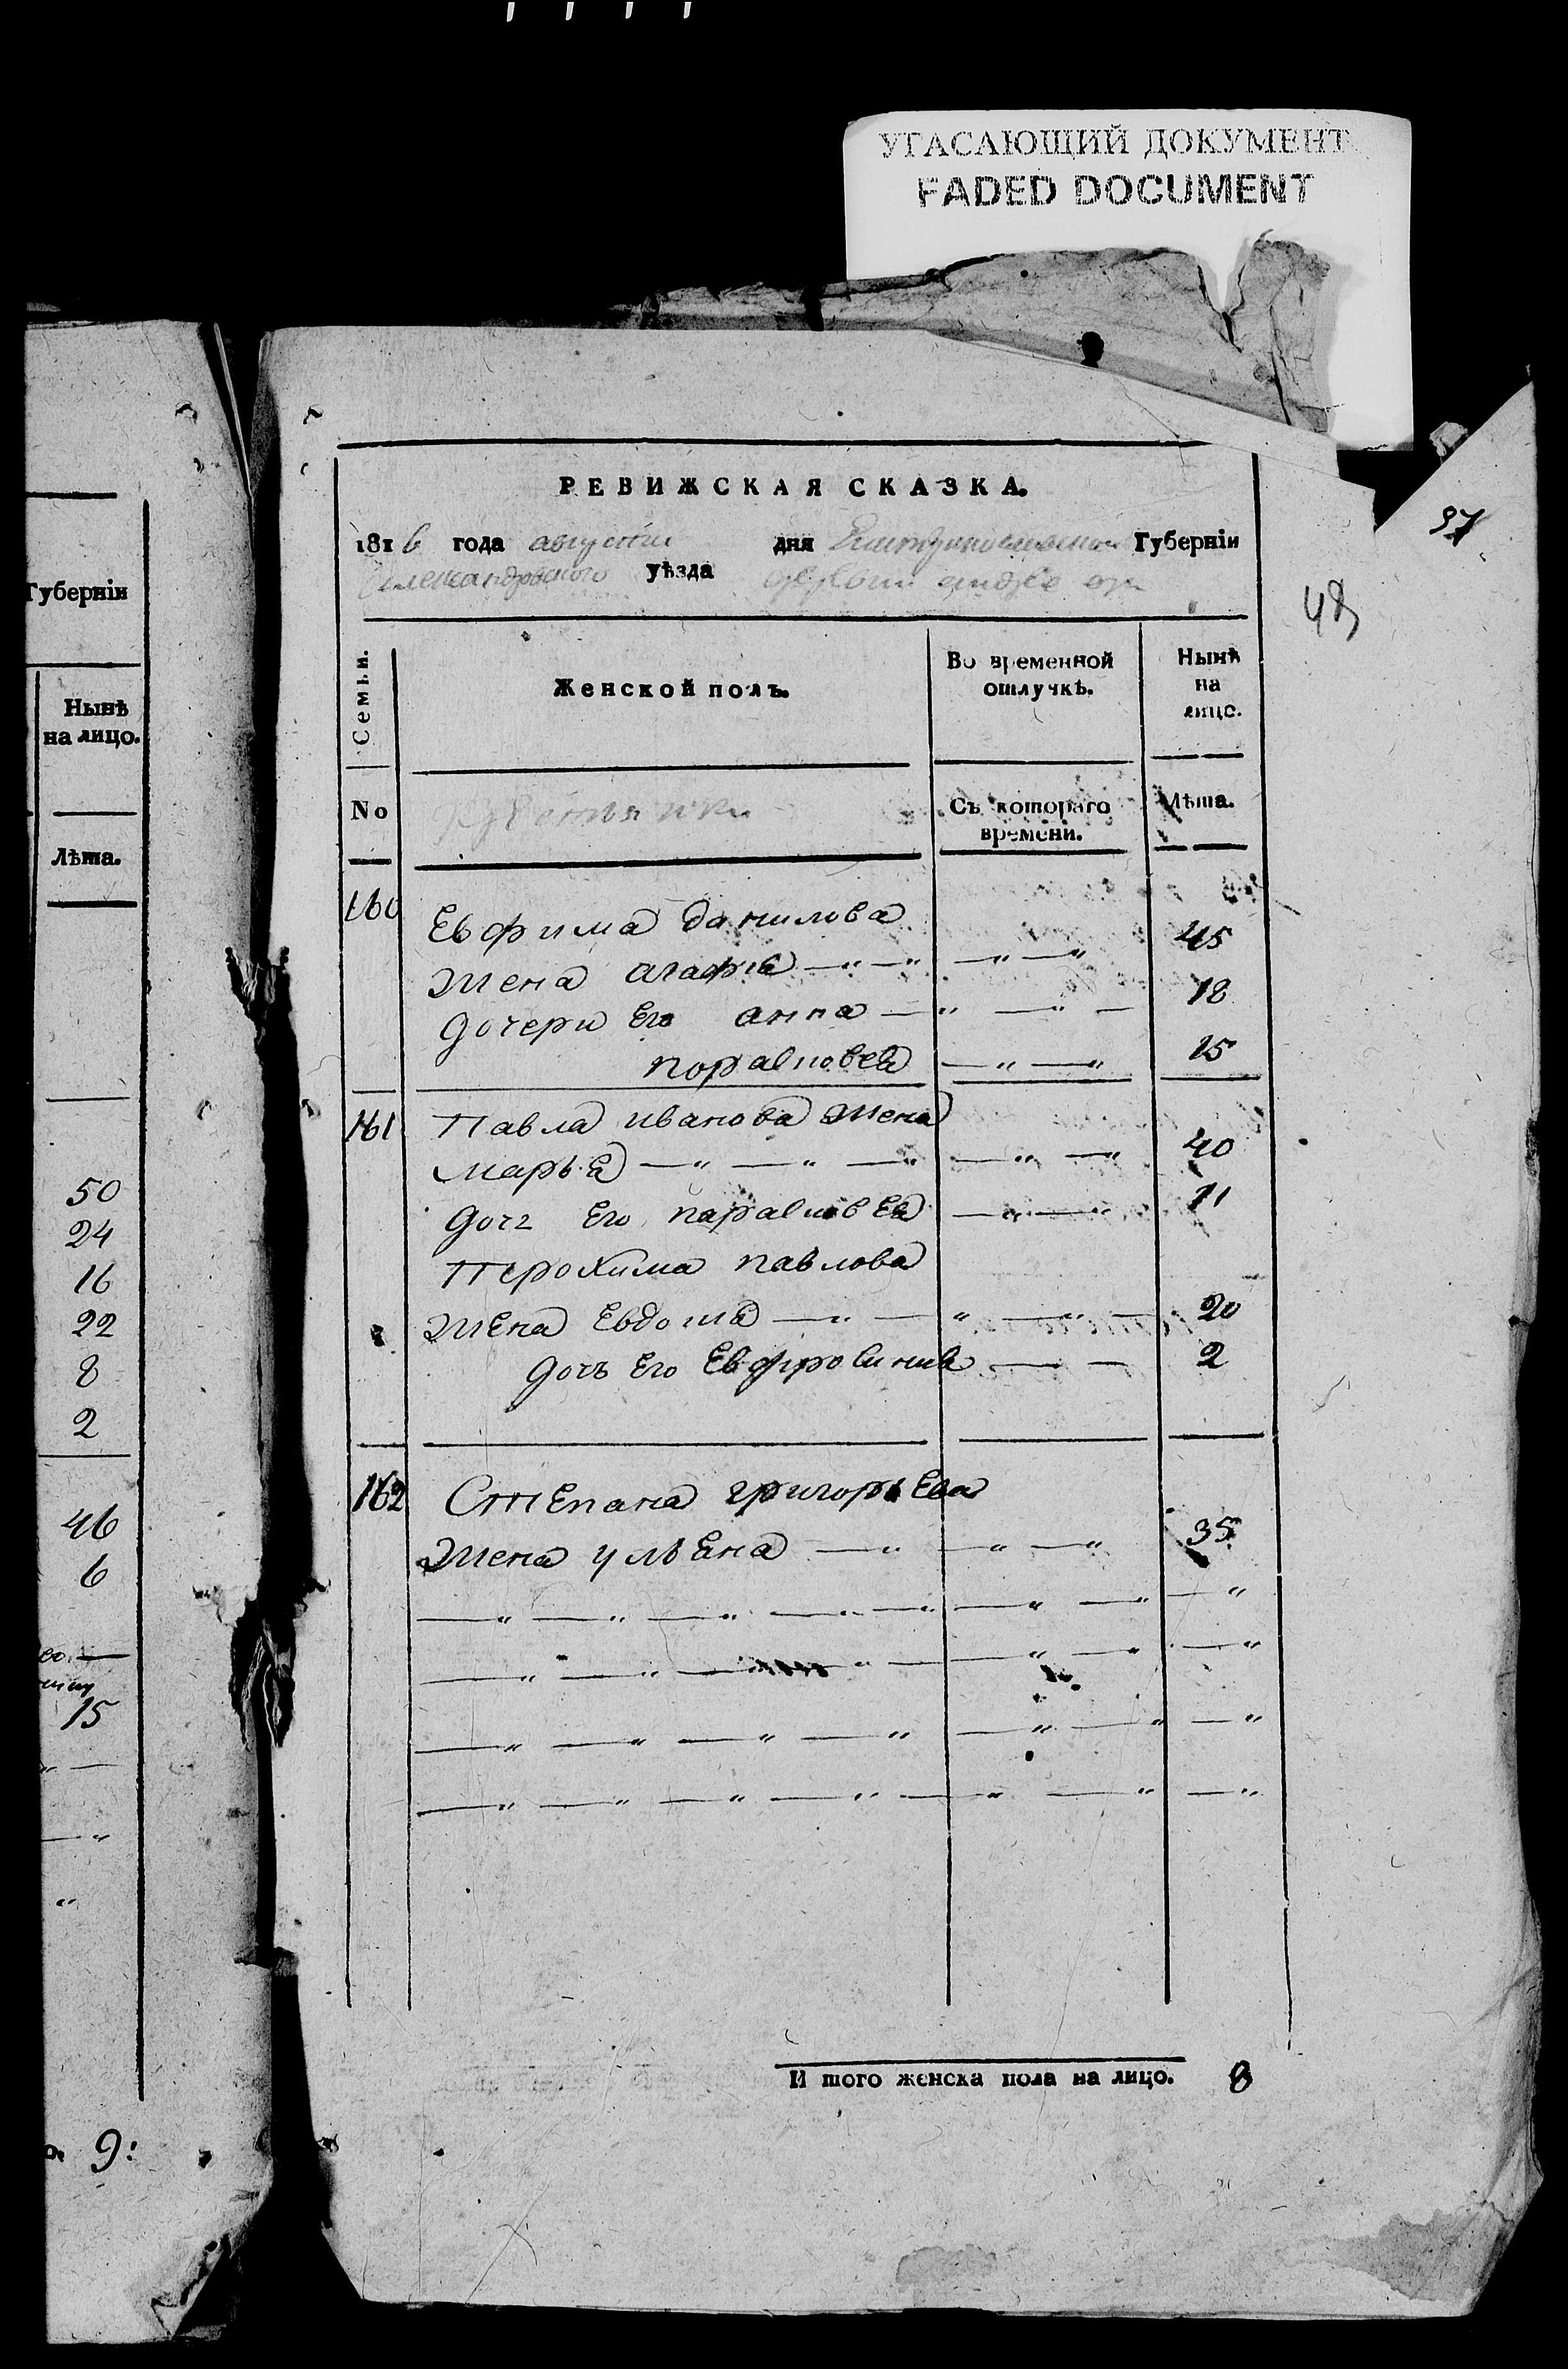 УГАСАЮЩИЙ ДОКУМЕНТ
FADED DOCUMENT
97
48
РЕВИЖСКАЯ СКАЗКА.
1816 года августа дня Екатеринославской Губерніи
Александровского уѣзда
Семьи.
Женской полъ.
Во временной
отлучкѣ.
Нынѣ
на
лицо.
No
крестьянки
Съ котораго
времени.
Лѣта.
160
Евфима данилова
жена агафiа —„—„ —„—„ 45
дочери Его анна —„ —„ — 18
порасковеа —„—„ 15
161
Павла иванова жена
марьа —„ —„ —„ —„ —„ 40
дочъ Его парасковеа —„—„ 11
Терохима павлова
жена Евдошiа —„ —„ —„ — 20
дочъ Его Евфросиниа — — 2
162
Степана григорьева
жена ульана —„ —„ —„ 35
—„ —„ —„ —„ —„ —„ —„ —„
—„ —„ —„ — —„ —„ —„
—„ —„ —„ —„ —„ —„ —„
—„ —„ —„ —„ —„ —„ —„
И того женска пола на лицо. 8
Губерніи
Нынѣ
на лицо.
Лѣта.
50
24
16
22
8
2
46
6
15
9: